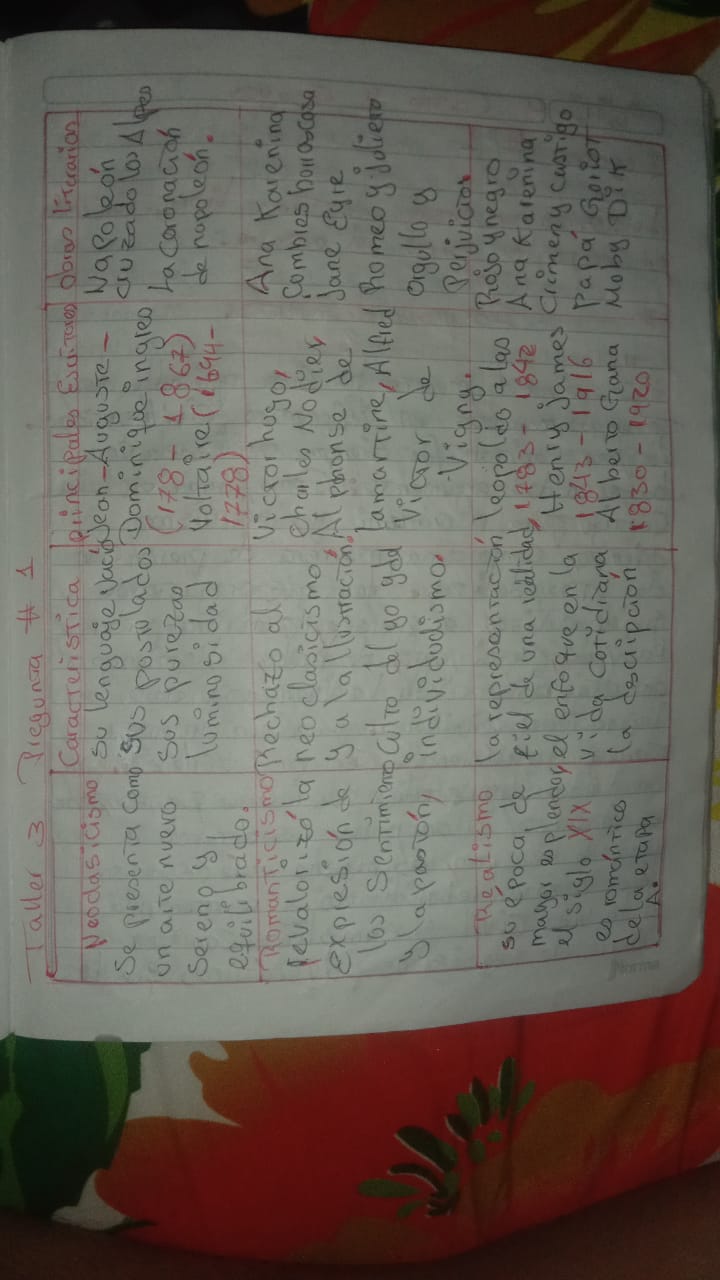 Taller 3 Pregunta # 1
Característica
principales Escritores
obras literarias
Neoclasicismo
Se presenta como
un arte nuevo
Sereno y
equilibrado.
su lenguaje vacío
sus postulados
sus purezas
luminosidad
Jean-Auguste-
Dominique ingres
(178 - 1867)
Voltaire (1694-
1778)
Napoleón
cruzado los Alpes
La coronación
de napoleón.
Romanticismo
revalorizó la
expresión de
los sentimiento
y la pasión,
Rechazo al
neoclasicismo
y a la ilustración.
Culto del yo y del
individudismo.
Victor hugo,
charles Nodier,
Alphonse de
lamartine, Alfred
Victor de
Vigny.
Ana Karenina
Combres borrascosa
Jane Eyre
Romeo y julieta
orgullo y
Perjuicio.
Realismo
su época de
mayor esplendor
el siglo XIX
es romántico
de la etapa
A.
la representación
fiel de una realidad,
el enfoque en la
vida cotidiana
la descripción
leopoldo alas
1783 - 1842
Henry james
1843 - 1916
Alberto Gana
1830 - 1920
Rojo y negro
Ana Karenina
Crimen y castigo
Papá Goriot
Moby Dik
Norma